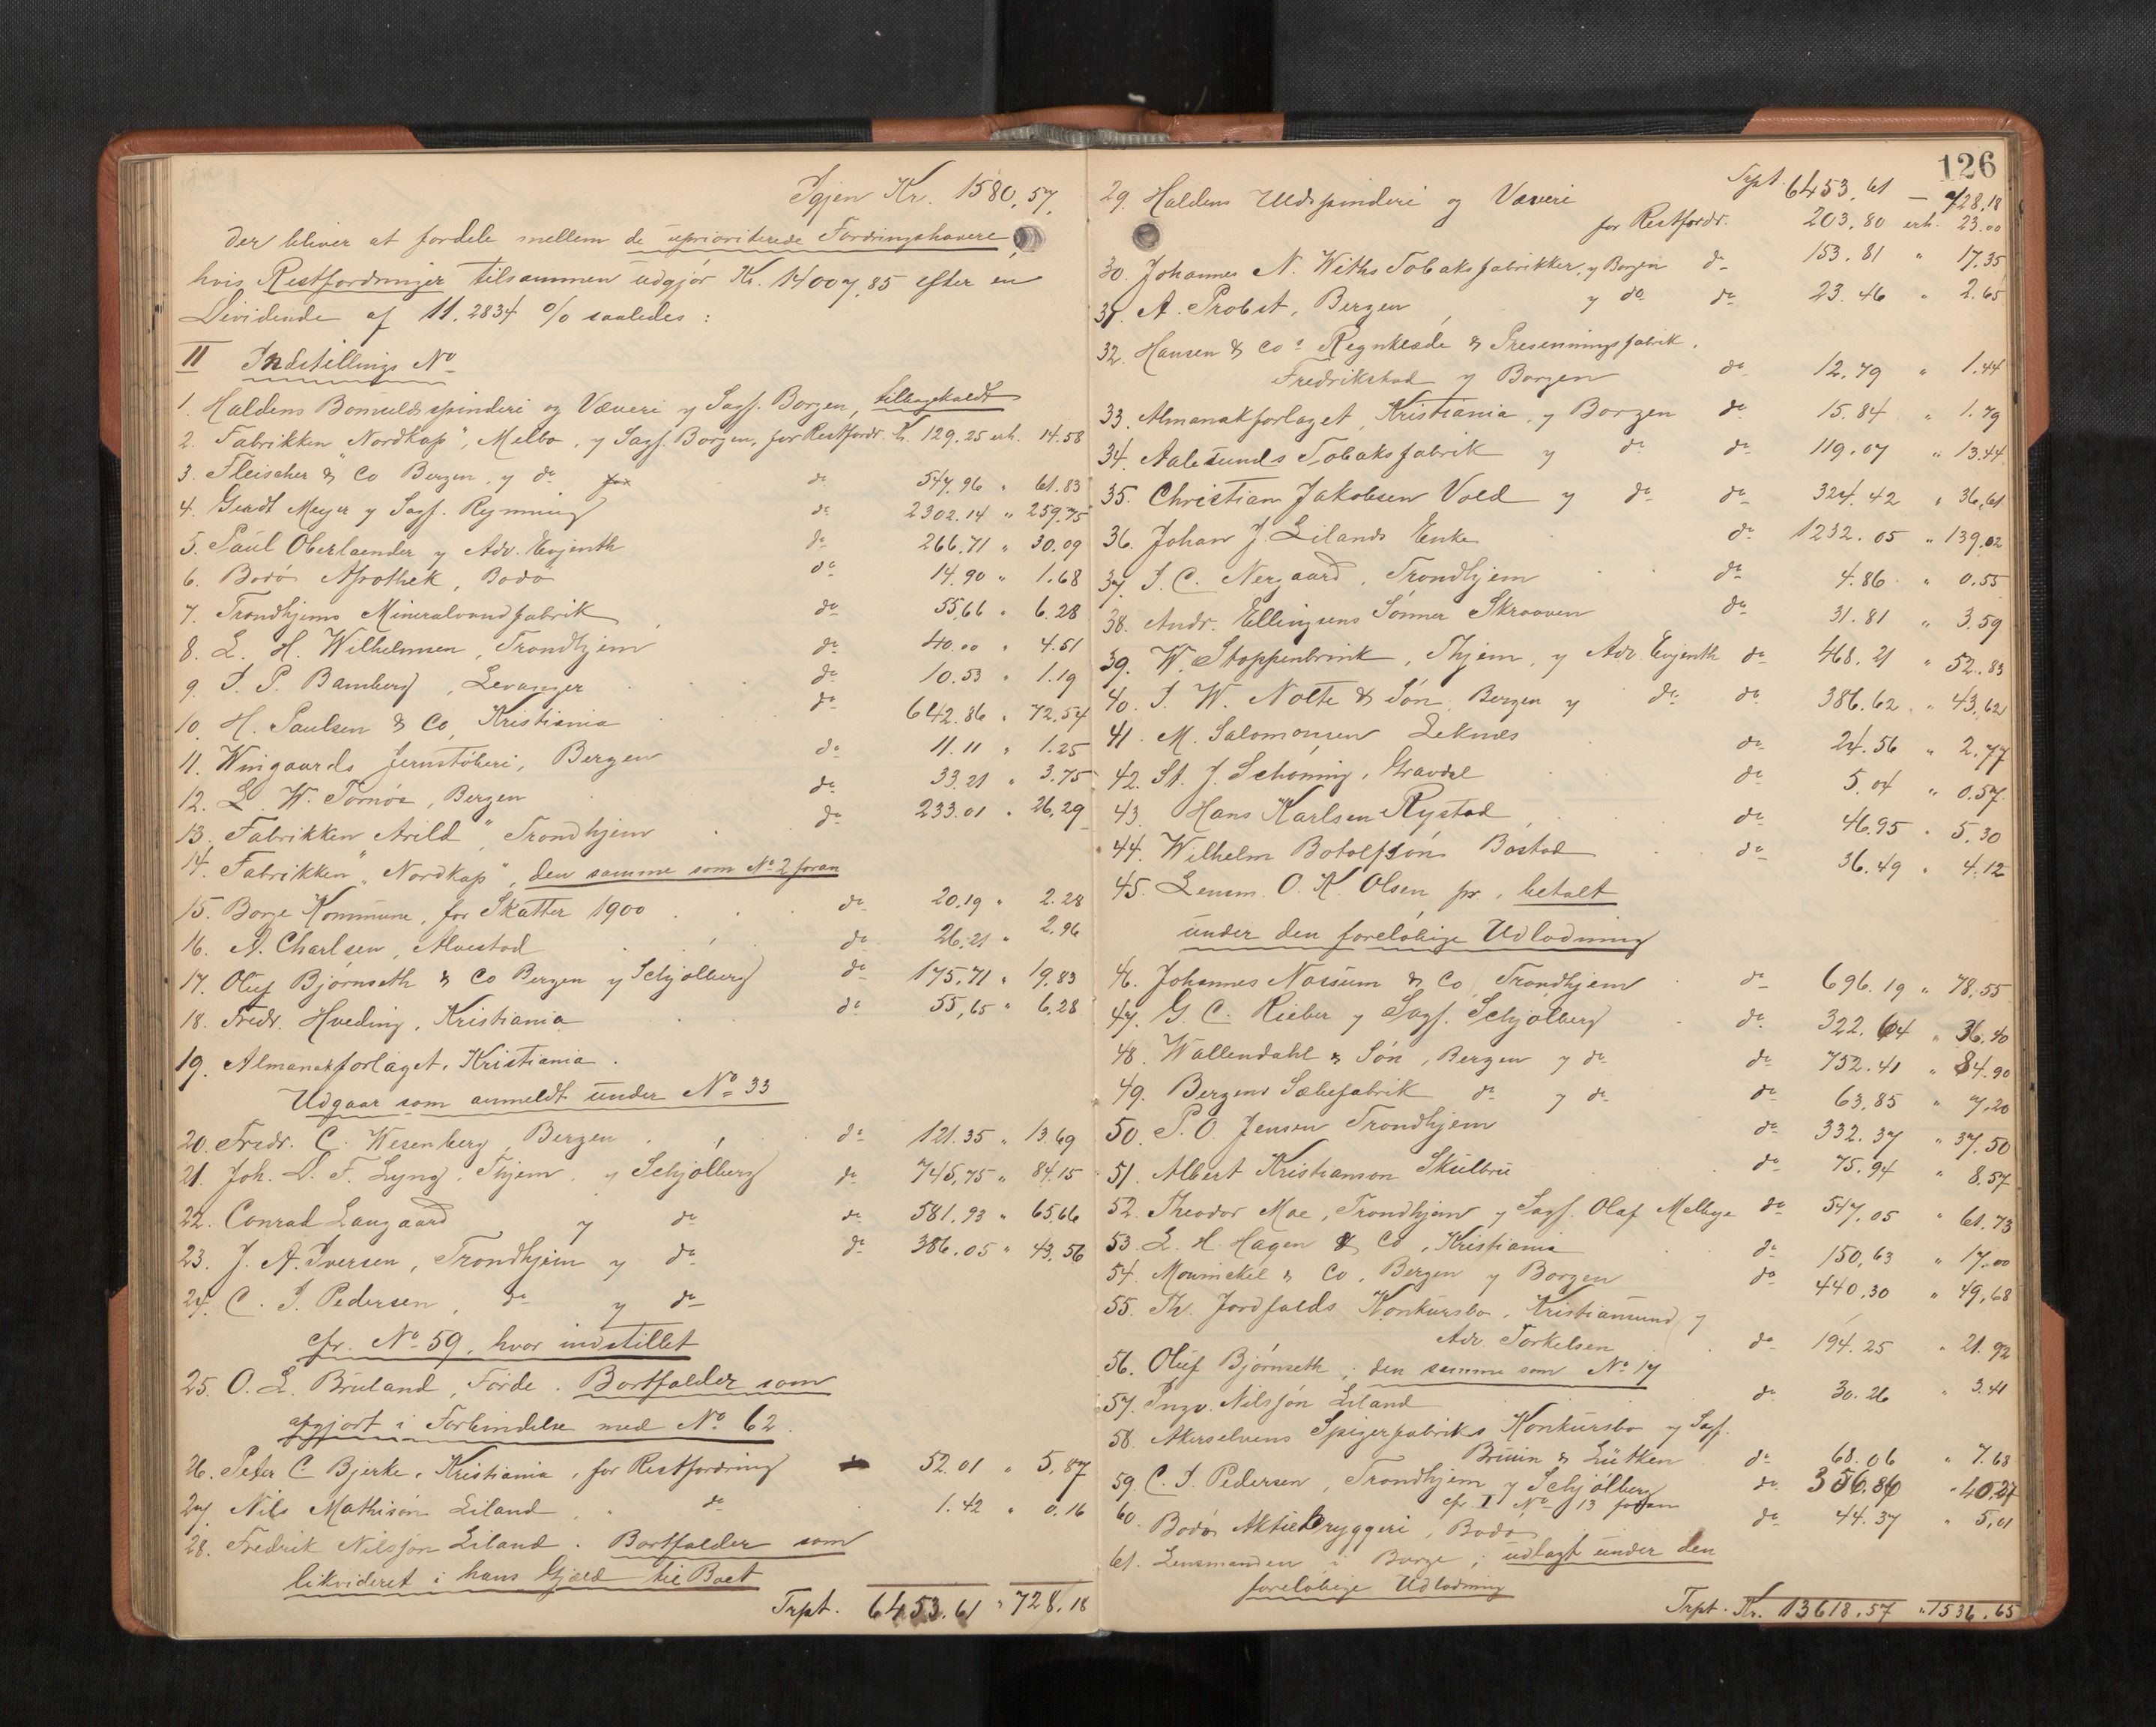 Igjen Kr. 1580,57,
der bliver at fordele mellem de uprioriterede Fordringshavere,
hvis Restfordringer tilsammen udgjør Kr. 14007,85 efter en
Dividende af 11.2834 % saaledes:
II Indstillings No
1. Haldens Bomuldsspinderi og Væveri v Sagf. Borgen, tilbageholdt
2. Fabrikken "Nordkap", Melbo, v Sagf. Borgen, for Restfordr. Kr. 129.25 erh. 14.58
3. Fleischer & Co Bergen, v do do 547,96 " 61.83
4. Gerdt Meyer v Sagf. Rynning do 2302.14 " 259.75
5. Paul Oberlaender v Adv. Evjenth do 266.71 " 30.09
6. Bodø Apothek, Bodø do 14.90 " 1.68
7. Trondhjems Mineralvandfabrik do 55,66 " 6.28
8. L. H. Wilhelmsen, Trondhjem do 40.00 " 4.51
9. I. P. Bamberg, Levanger do 10.53 " 1.19
10. H. Paulsen & Co, Kristiania do 642.86 " 72,54
11. Wingaards Jernstøberi, Bergen do 11.11 " 1.25
12. L. W. Tornøe, Bergen do 33.21 " 3.75
13. Fabrikken Arild, Trondhjem do 233.01 " 26,29
14. Fabrikken "Nordkap", den samme som No 2 foran
15. Borge Kommune, for Skatter 1900 do 20,19 " 2.28
16. A. Charlsen, Alvestad do 26,21 " 2.96
17. Oluf Bjørnseth & Co Bergen v Schjølberg do 175,71 " 19,83
18. Fredr. Hveding, Kristiania do 55,65 " 6,28
19. Almanakforlaget, Kristiania.
Udgaar som anmeldt under No 33
20. Fredr. C. Wesenberg, Bergen do 121.35 " 13.69
21. Joh. D. F. Lyng, Thjem, v Schjølberg do 745,75 " 84.15
22. Conrad Langaard v do do 581.93 " 65,66
23. J. A. Iversen, Trondhjem v do do 386.05 " 43,56
24. C. I. Pedersen, do v do
cfr. No 59, hvor indstillet
25. O. L. Bruland, Førde. Bortfalder som
afgjort i Forbindelse med No 62.
26. Peter C. Bjerke, Kristiania, for Restfordring 52.01 " 5,87
27. Nils Mathisøn Liland, do 1.42 " 0,16
28. Fredrik Nilssøn Liland. Bortfalder som
likvideret i hans Gjæld til Boet
Trpt. 6453.61 " 728,18
126
Trpt. 6453,61 — 728,18
29. Haldens Uldspinderi og Væveri
for Restfordr. 203,80 erh. 23.00
30. Johannes N. Withs Tobaksfabrikker, v Borgen do 153.81 " 17.35
31. A. Probst, Bergen, v do do 23.46 " 2.65
32. Hansen & Cos Regnklæde & Presenningsfabrik,
Fredrikstad v Borgen do 12.79 " 1.44
33. Almanakforlaget, Kristiania, v Borgen do 15.84 " 1.79
34. Aalesunds Tobaksfabrik v do do 119.07 " 13.44
35. Christian Jakobsen Vold v do do 324.42 " 36,61
36. Johan J. Lilands Enke do 1232.05 " 139.02
37. I. C. Nergaard, Trondhjem do 4.86 " 0.55
38. Andr. Ellingsens Sønner Skraaven do 31.81 " 3.59
39. W. Stoppenbrink, Thjem, v Adv. Evjenth do 468.21 " 52.83
40. I. W. Nolte & Søn, Bergen v do do 386.62 " 43,62
41. M. Salomonsen Leknes do 24.56 " 2.77
42. St. J. Schøning, Gravdal do 5.04 " 0.57
43. Hans Karlsen Rystad do 46.95 " 5.30
44. Wilhelm Botolfsøn Bøstad do 36.49 " 4.12
45. Lensm. O. K. Olsen, pr., betalt
under den foreløbige Udlodning
46. Johannes Næssum & Co, Trondhjem do 696.19 " 78,55
47. G. C. Rieber v Sagf. Schjølberg do 322.64 " 36.40
48. Wallendahl & Søn, Bergen v do do 752.41 " 84.90
49. Bergens Sæbefabrik do v do do 63,85 " 7,20
50. P. O. Jensen Trondhjem do 332.37 " 37.50
51. Albert Kristianson Skulbru do 75.94 " 8.57
52. Theodor Moe, Trondhjem v Sagf. Olaf Mellbye do 547,05 " 61.73
53. L. H. Hagen & Co, Kristiania do 150,63 " 17.00
54. Mowinckel & Co, Bergen v Borgen do 440,30 " 49,68
55. Th. Jordfalds Konkursbo, Kristiansund, v
Adv. Torkelsen do 194.25 " 21.92
56. Oluf Bjørnseth, den samme som No 17
57. Ingv. Nilssøn Liland do 30.26 " 3.41
58. Akerselvens Spigerfabriks Konkursbo v Sagf.
Bruun & Lütken do 68.06 " 7.68
59. C. I. Pedersen, Trondhjem v Schjølberg do 356.86 " 40.27
cfr. I No 13 foran
60. Bodø Aktiebryggeri, Bodø do 44.37 " 5,01
61. Lensmanden i Borge; udlagt under den
foreløbige Udlodning
Trpt. Kr. 13618.57 " 1536.65